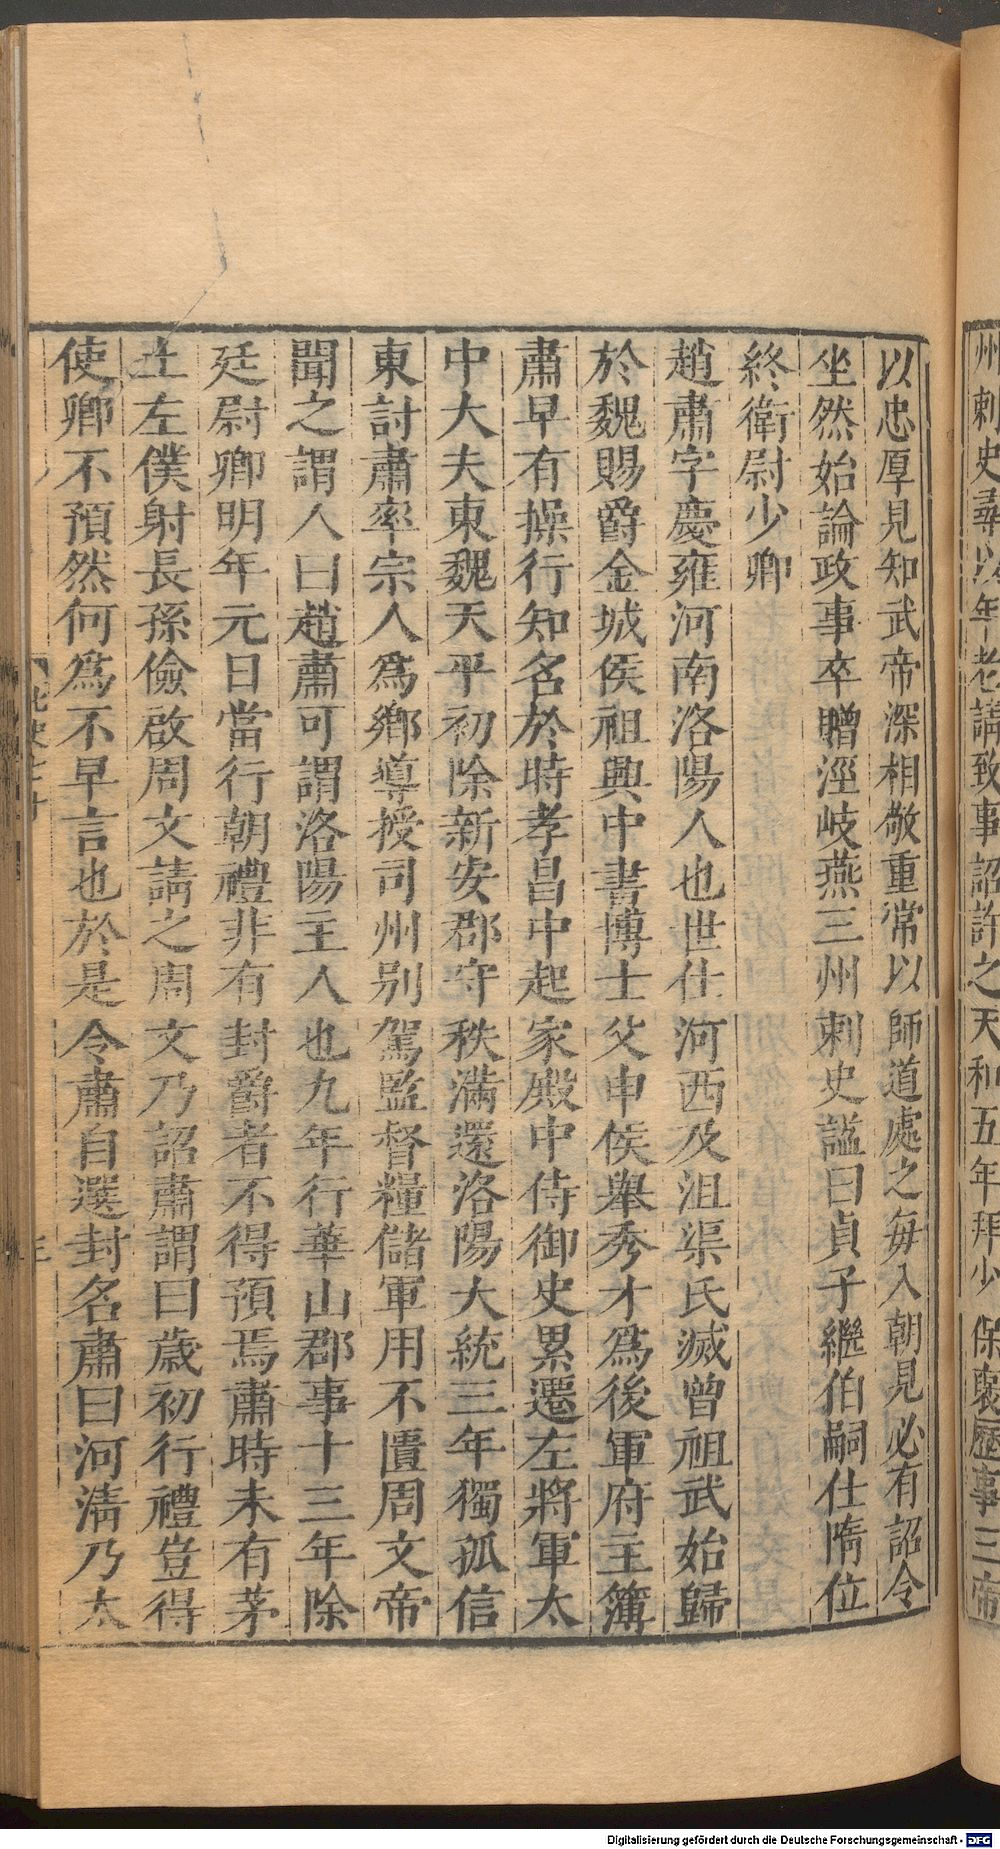 州刺史尋以年老請致事詔許之天和五年拜少保褒歷事三帝
以忠厚見知武帝深相敬重常以師道處之每入朝見必有詔令
坐然始論政事卒贈涇岐燕三州刺史謚曰貞子繼伯嗣仕隋位
終衛尉少卿
趙肅字慶雍河南洛陽人也世仕河西及沮渠氏滅曾祖武始歸
於魏賜爵金城侯祖興中書博士父申侯舉秀才爲後軍府主簿
肅早有操行知名於時孝昌中起家殿中侍御史累遷左將軍太
中大夫東魏天平初除新安郡守秩滿還洛陽大統三年獨孤信
東討肅率宗人爲鄉導授司州別駕監督糧儲軍用不匱周文帝
聞之謂人曰趙肅可謂洛陽主人也九年行華山郡事十三年除
廷尉卿明年元日當行朝禮非有封爵者不得預焉肅時未有茅
土左僕射長孫儉啟周文請之周文乃詔肅謂曰歲初行禮豈得
使卿不預然何爲不早言也於是令肅自選封名肅曰河清乃太
Digitalisierung gefördert durch die Deutsche Forschungsgemeinschaft - DFG